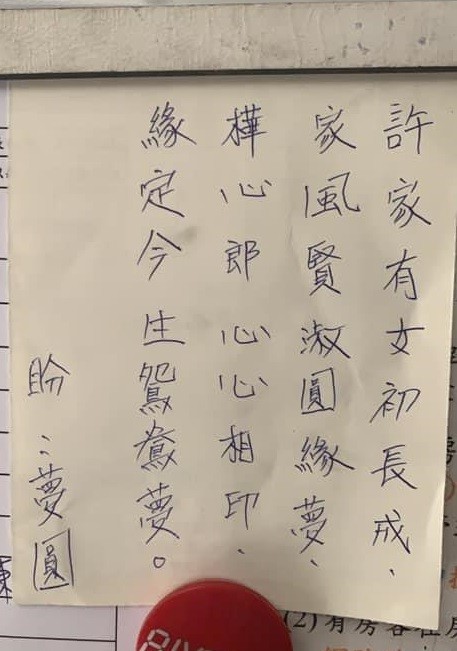 許家有女初長成、
家風賢淑圓緣夢、
樺心郎心心相印、
緣定今生鴛鴦夢。
盼：夢圓
(2)有房客住房